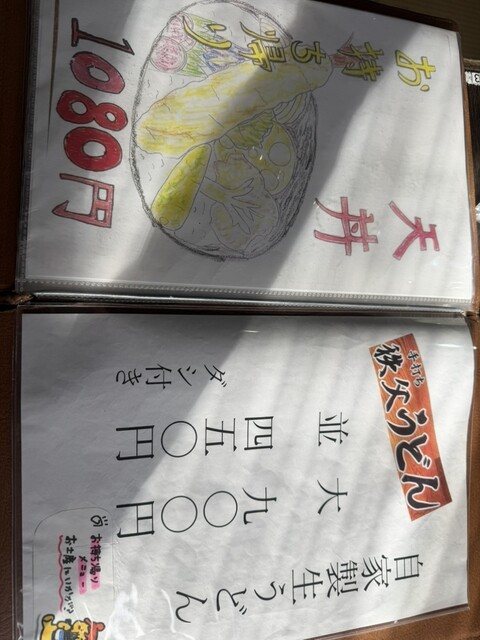 天丼
お持ち帰り
1080円
手打ち
秩父うどん
自家製生うどん
並 四五〇円
大 九〇〇円
ダシ付き
お持ち帰り
メニュー
お土産にいかが?